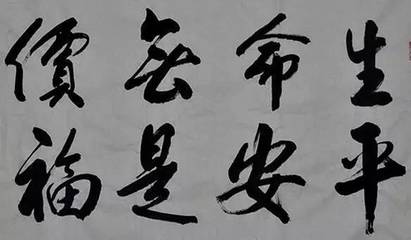 生命無價
平安是福